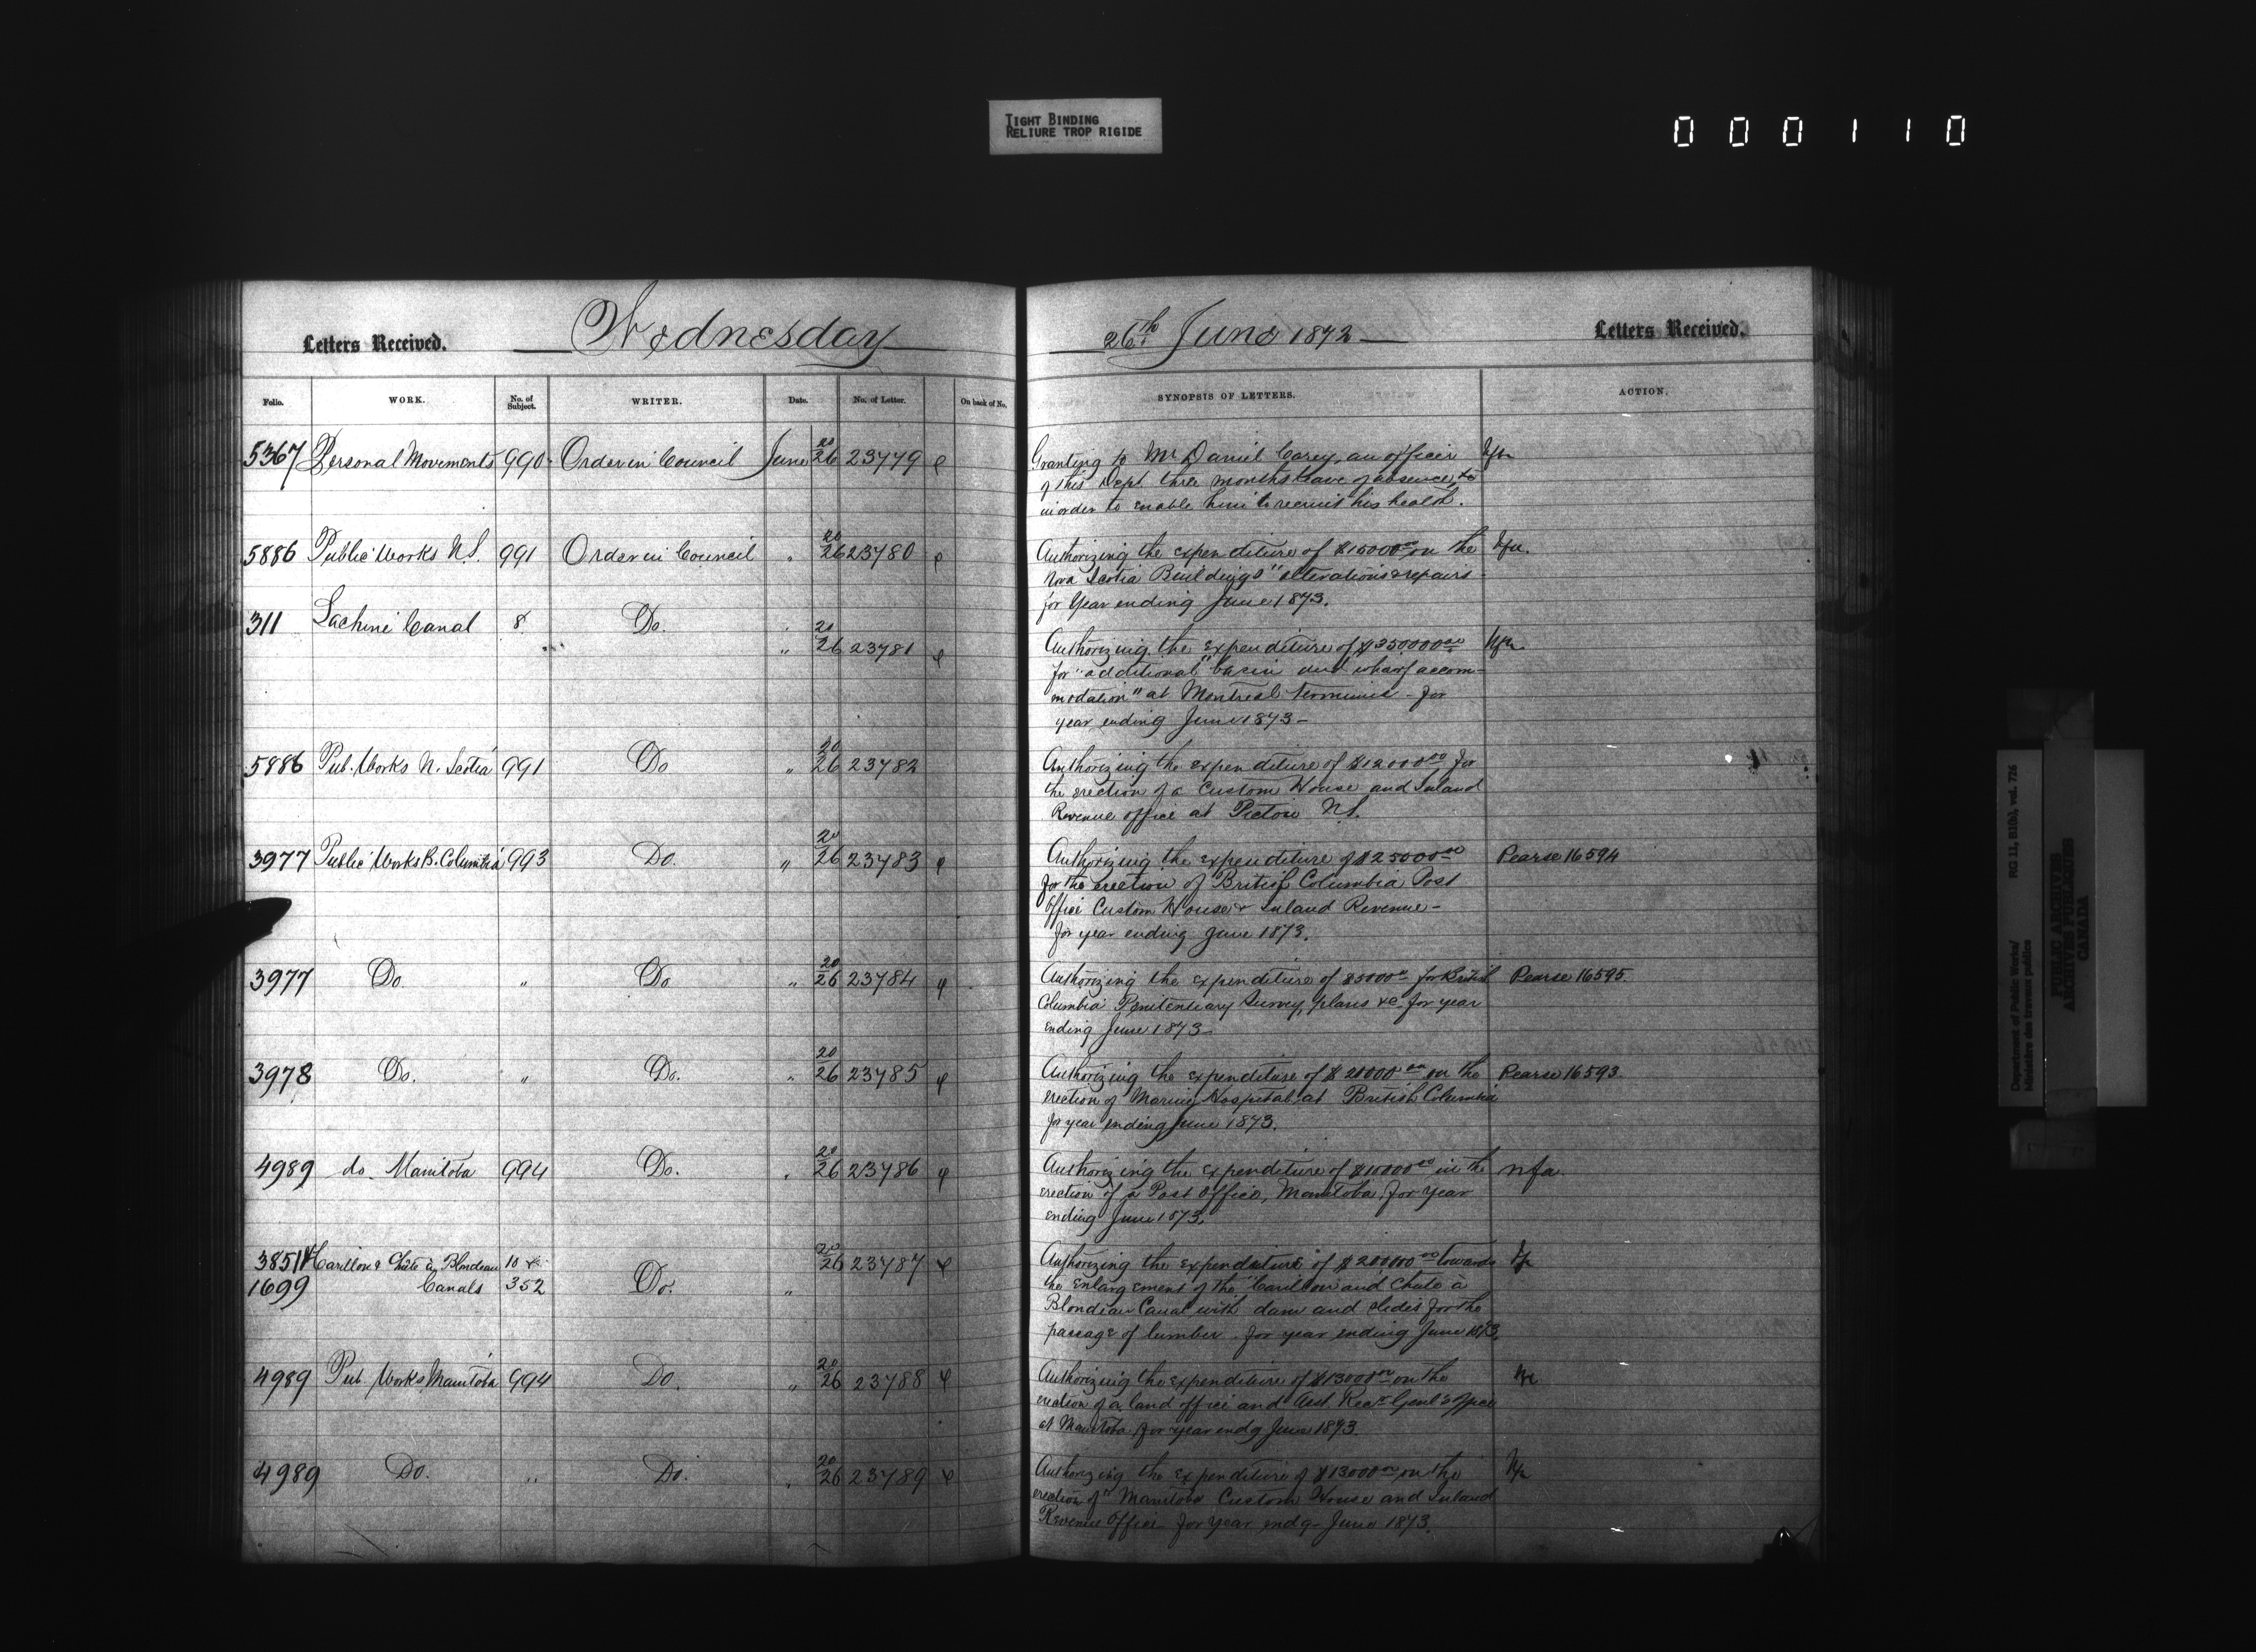 TIGHT BINDING
RELIURE TROP RIGIDE
000110
Letters Received. Wednesday
Folio. WORK. No. of Subject. WRITER. Date. No. of Letter. On back of No.
5367 Personal Movements 990 Order in Council June 20/26 23779
5886 Public Works N.S. 991 Order in Council " 20/26 23780
311 Lachine Canal 8 Do. " 20/26 23781
5886 Pub. Works N. Scotia 991 Do " 20/26 23782
3977 Public Works B. Columbia 993 Do. " 20/26 23783
3977 Do. " Do " 20/26 23784
3978 Do. " Do. " 20/26 23785
4989 do. Manitoba 994 Do. " 20/26 23786
3851 Carillon & Chûte à Blondeau 10 20/26 23787
1699 Canals 352 Do. "
4989 Pub. Works Manitoba 994 Do. " 20/26 23788
4989 Do. " Do. " 20/26 23789
26th June 1872 Letters Received.
SYNOPSIS OF LETTERS. ACTION.
Granting to Mr Daniel Carey, an officer
of this Dept three months leave of absence,
in order to enable him to recruit his health.
Authorizing the expenditure of $15000.00 on the
Nova Scotia Buildings "alterations & repairs -
for Year ending June 1873.
Authorizing the expenditure of $350000.00
for "additional" basin and wharf accom-
modation" at Montreal terminus - for
year ending June 1873 -
Authorizing the expenditure of $12000.00 for
the erection of a Custom House and Inland
Revenue office at Pictou N.S.
Authorizing the expenditure of $25000.00 Pearse 16594
for the erection of British Columbia Post
Office Custom House & Inland Revenue -
for year ending June 1873.
Authorizing the expenditure of $5000.00 for British Pearse 16595.
Columbia Penitentiary Survey, plans &c for year
ending June 1873
Authorizing the expenditure of $20000.00 on the Pearse 16593.
erection of Marine Hospital at British Columbia
for year ending June 1873.
Authorizing the expenditure of $10000.00 in the nfa
erection of a Post Office, Manitoba, for year
ending June 1873.
Authorizing the expenditure of $200000.00 towards
the enlargement of the Carillon and Chute à
Blondeau Canal with dam and slides for the
passage of lumber. for year ending June 1873.
Authorizing the expenditure of $13000.00 on the
erection of a land office and Asst. Recr. Genl's Office
at Manitoba for year endg June 1873.
Authorizing the expenditure of $13000.00 on the
erection of Manitoba Custom House and Inland
Revenue Office for year endg June 1873.
Department of Public Works/
Ministère des travaux publics
RG 11, B1(b), vol. 726
PUBLIC ARCHIVES
ARCHIVES PUBLIQUES
CANADA